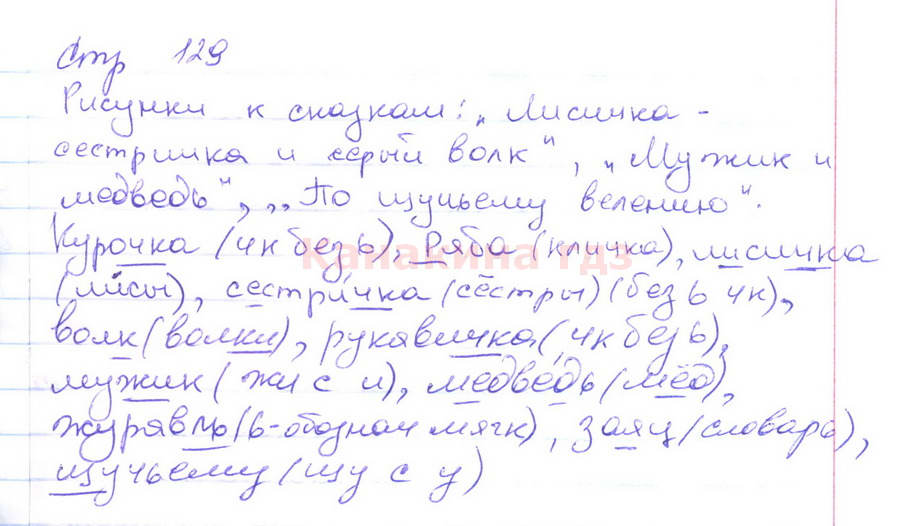 Стр 129
Рисунки к сказкам: „Лисичка-
сестричка и серый волк", „Мужик и
медведь", „По щучьему велению".
Курочка (чк без ь), Ряба (кличка), лисичка
Канакина гдз
(лисы), сестричка (сёстры) (без ь чк),
волк (волки), рукавичка (чк без ь),
мужик (жи с и), медведь (мёд),
журавль (ь-обознач мягк), заяц (словарь),
щучьему (щу с у)